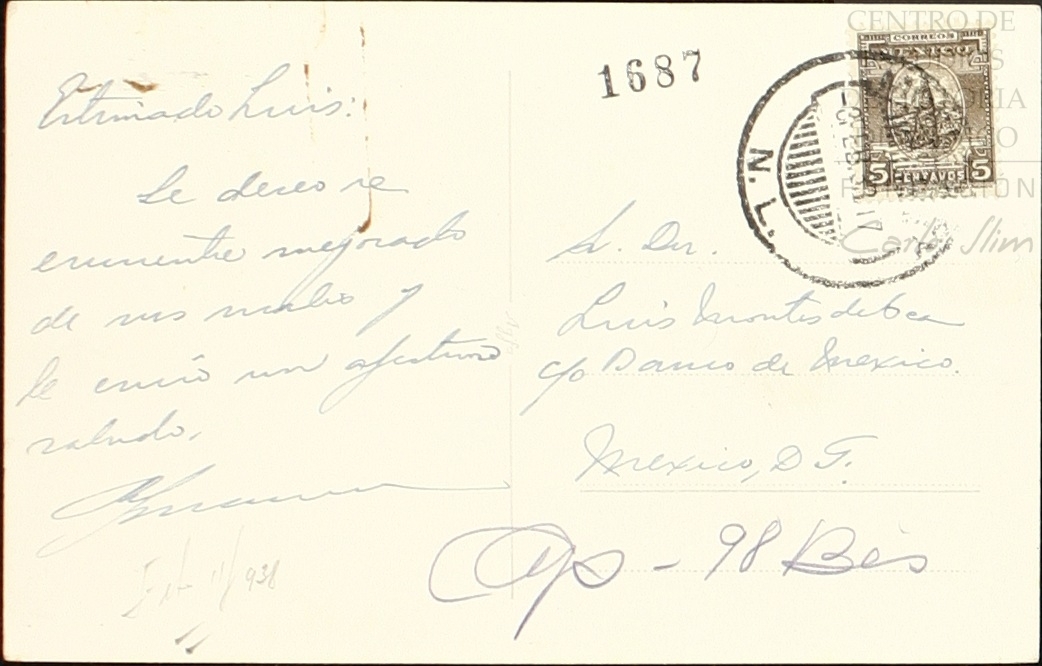 Estimado Luis:
Le deseo se
encuentre mejorado
de sus males y
le envío un afectuoso
saludo.
11/938
1687
CORREOS
MEXICO
5 CENTAVOS 5
N. L.
CENTRO DE
Carlos Slim
Sr. Dn.
Luis Montes de Oca
c/o Banco de Mexico.
Mexico, D F.
Ap - 98 Bis